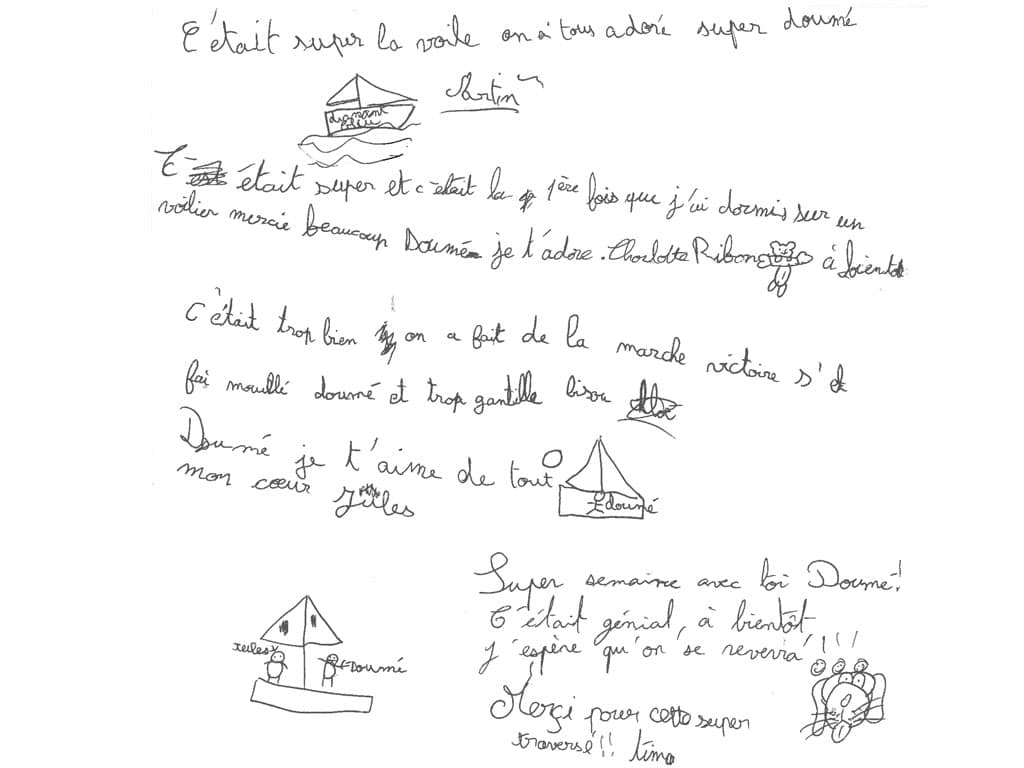 C'était super la voile on à tous adoré super doumé
Martin
diamant bleu
C' était super et c'était la 1ère fois que j'ai dormis sur un
voilier mercie beaucoup Doumé je t'adore. Charlotte Ribon à bientot
C'était trop bien on a fait de la marche victoire s'et
fai mouillé doumé et trop gantille bisou Chloé
Doumé je t'aime de tout
mon cœur Jules
doumé
Super semaine avec toi Doumé!
C'était génial, à bientôt,
j'espère qu'on se reverra !!!
Jules
Doumé
Merçi pour cette super
traversé!! tima